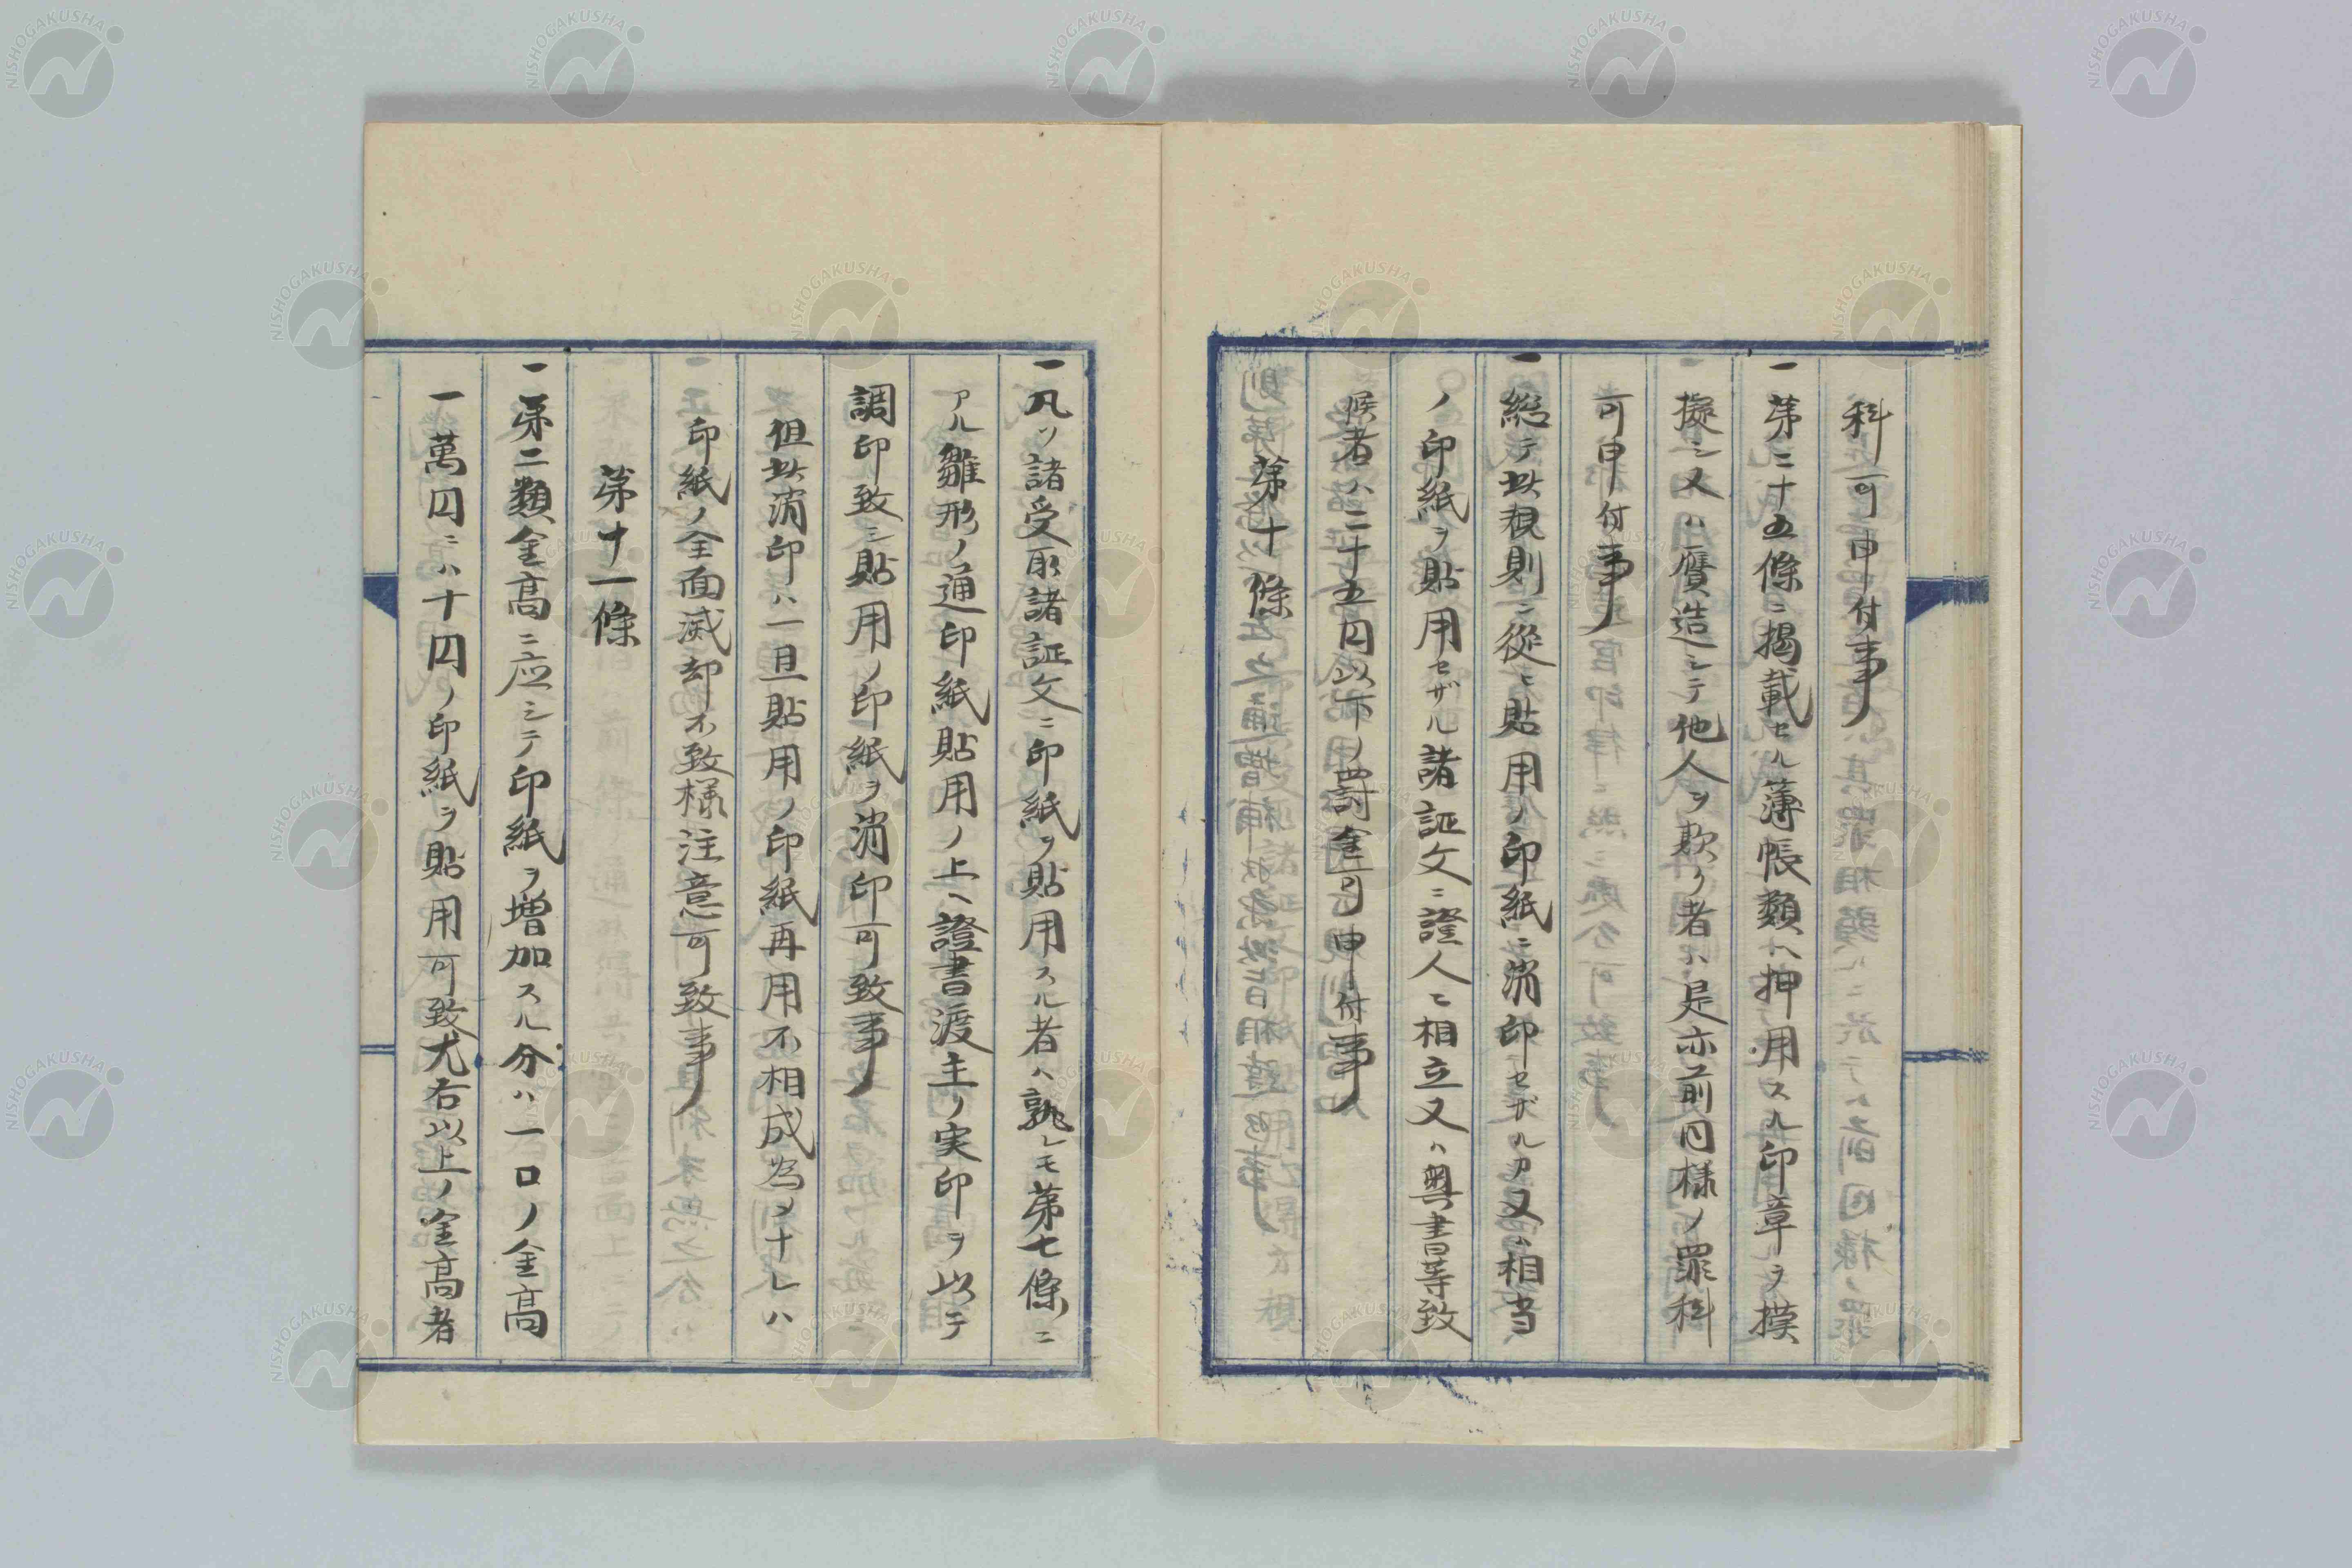 科可申付事
一第二十五條ニ掲載セル薄帳類ヘ押用スル印章ヲ摸
擬シ又ハ贋造シテ他人ヲ欺ク者ハ是亦前同様ノ罪科
可申付事
一総テ此規則ニ從ヒ貼用ノ印紙ニ消印セザルカ又ハ相当
ノ印紙ヲ貼用セザル諸証文ニ證人ニ相立又ハ奥書等致
候者ハ二十五円以下ノ罰金可申付事
第十條
一凡ソ諸受取諸証文ニ印紙ヲ貼用スル者ハ孰レモ第七條ニ
アル雛形ノ通印紙貼用ノ上ヘ證書渡主ノ実印ヲ以テ
調印致シ貼用ノ印紙ヲ消印可致事
但此消印ハ一旦貼用ノ印紙再用不相成為メナレハ
印紙ノ全面滅却不致様注意可致事
第十一條
一第二類金高ニ応シテ印紙ヲ増加スル分ハ一口ノ金高
一萬円ニハ十円ノ印紙ヲ貼用可致尤右以上ノ金高者
NISHOGAKUSHA